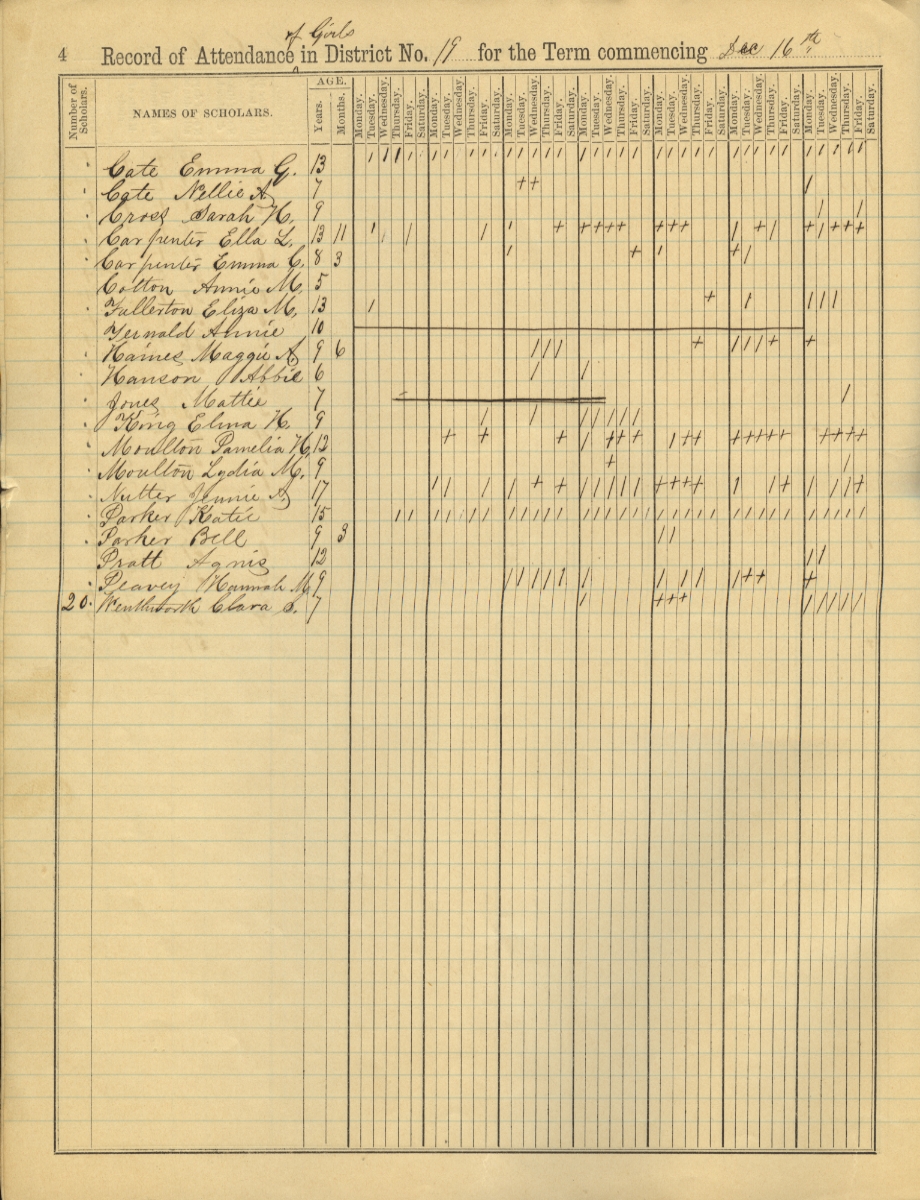 of Girls
4 Record of Attendance in District No. 19 for the Term commencing Dec 16th
Number of Scholars. NAMES OF SCHOLARS. AGE. Years. Months. Monday. Tuesday. Wednesday. Thursday. Friday. Saturday. Monday. Tuesday. Wednesday. Thursday. Friday. Saturday. Monday. Tuesday. Wednesday. Thursday. Friday. Saturday. Monday. Tuesday. Wednesday. Thursday. Friday. Saturday. Monday. Tuesday. Wednesday. Thursday. Friday. Saturday. Monday. Tuesday. Wednesday. Thursday. Friday. Saturday. Monday. Tuesday. Thursday. Friday. Saturday.
Cate Emma G. 13
Cate Nellie A 7
Cross Sarah H. 9
Carpenter Ella L. 13 11
Carpenter Emma C. 8 3
Cotton Annie M. 5
Fullerton Eliza M. 13
Annie 10
Haines Maggie A 9 6
Hanson Abbie 6
Jones Mattie 7
King Elma H. 9
Moulton Pamelia H. 12
Moulton Lydia M. 9
Nutter Jennie A 17
Parker Katie 15
Parker Bell 9 3
Pratt Agnis 12
Peavey Hannah M 9
20. Wenthwork Clara S. 7